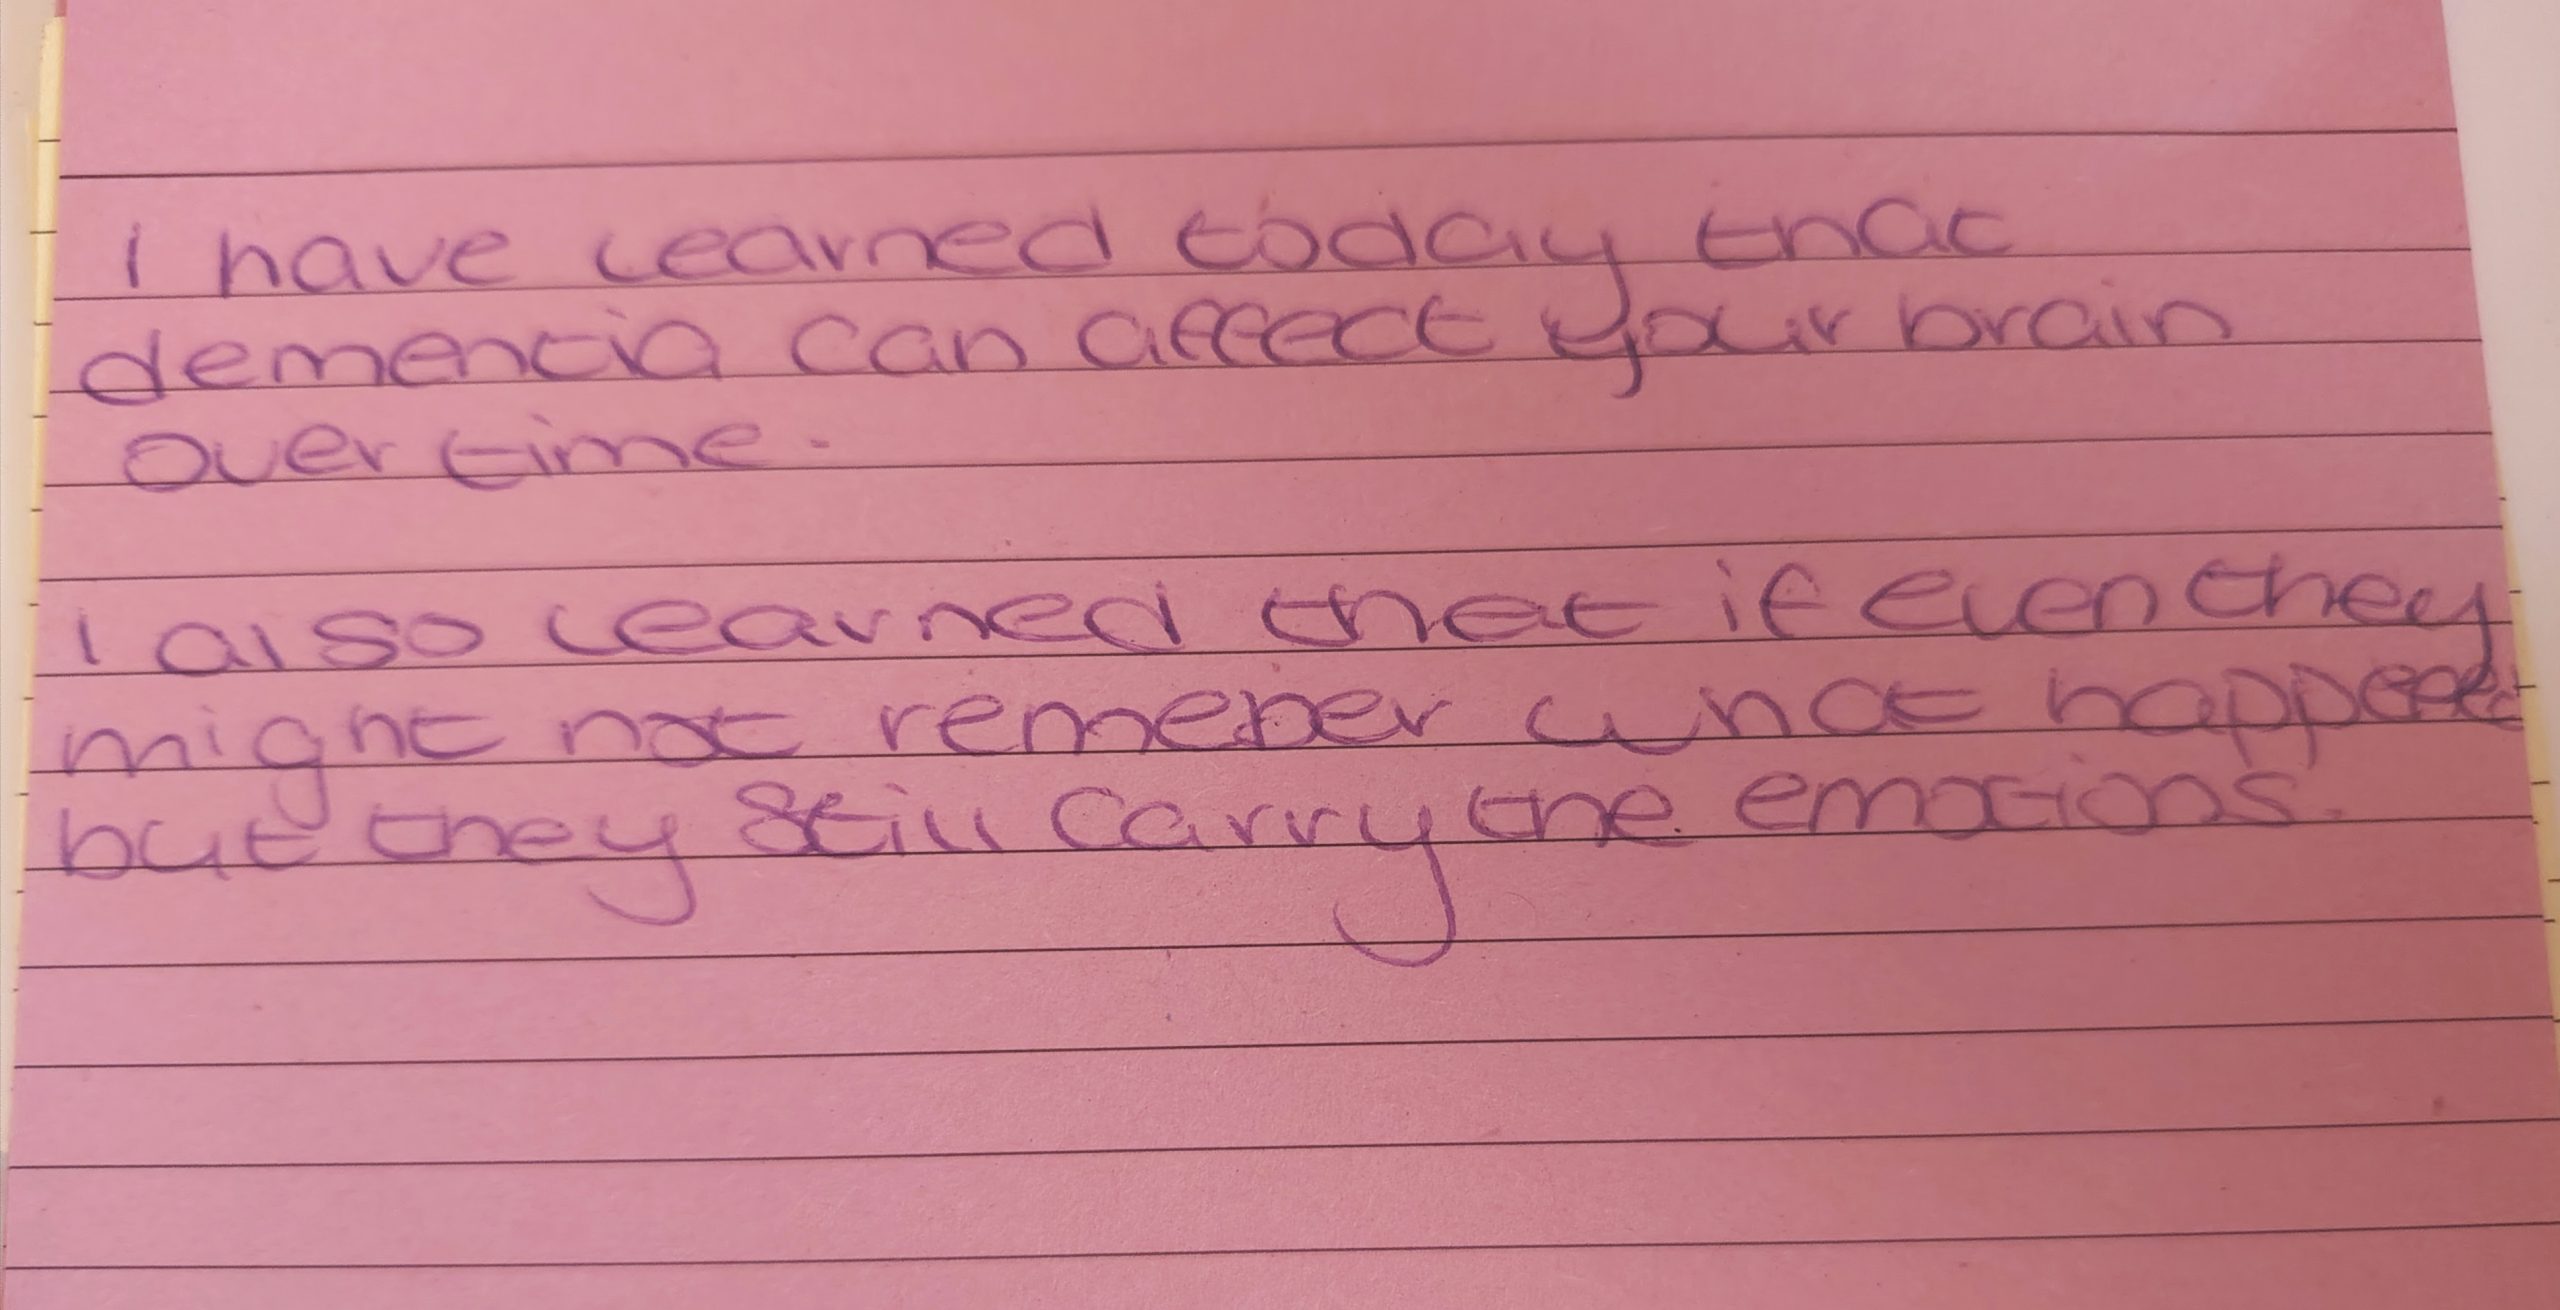 I have learned today that
dementia can affect your brain
over time.
I also learned that if even they
might not remeber what happened
but they still carry the emotions.